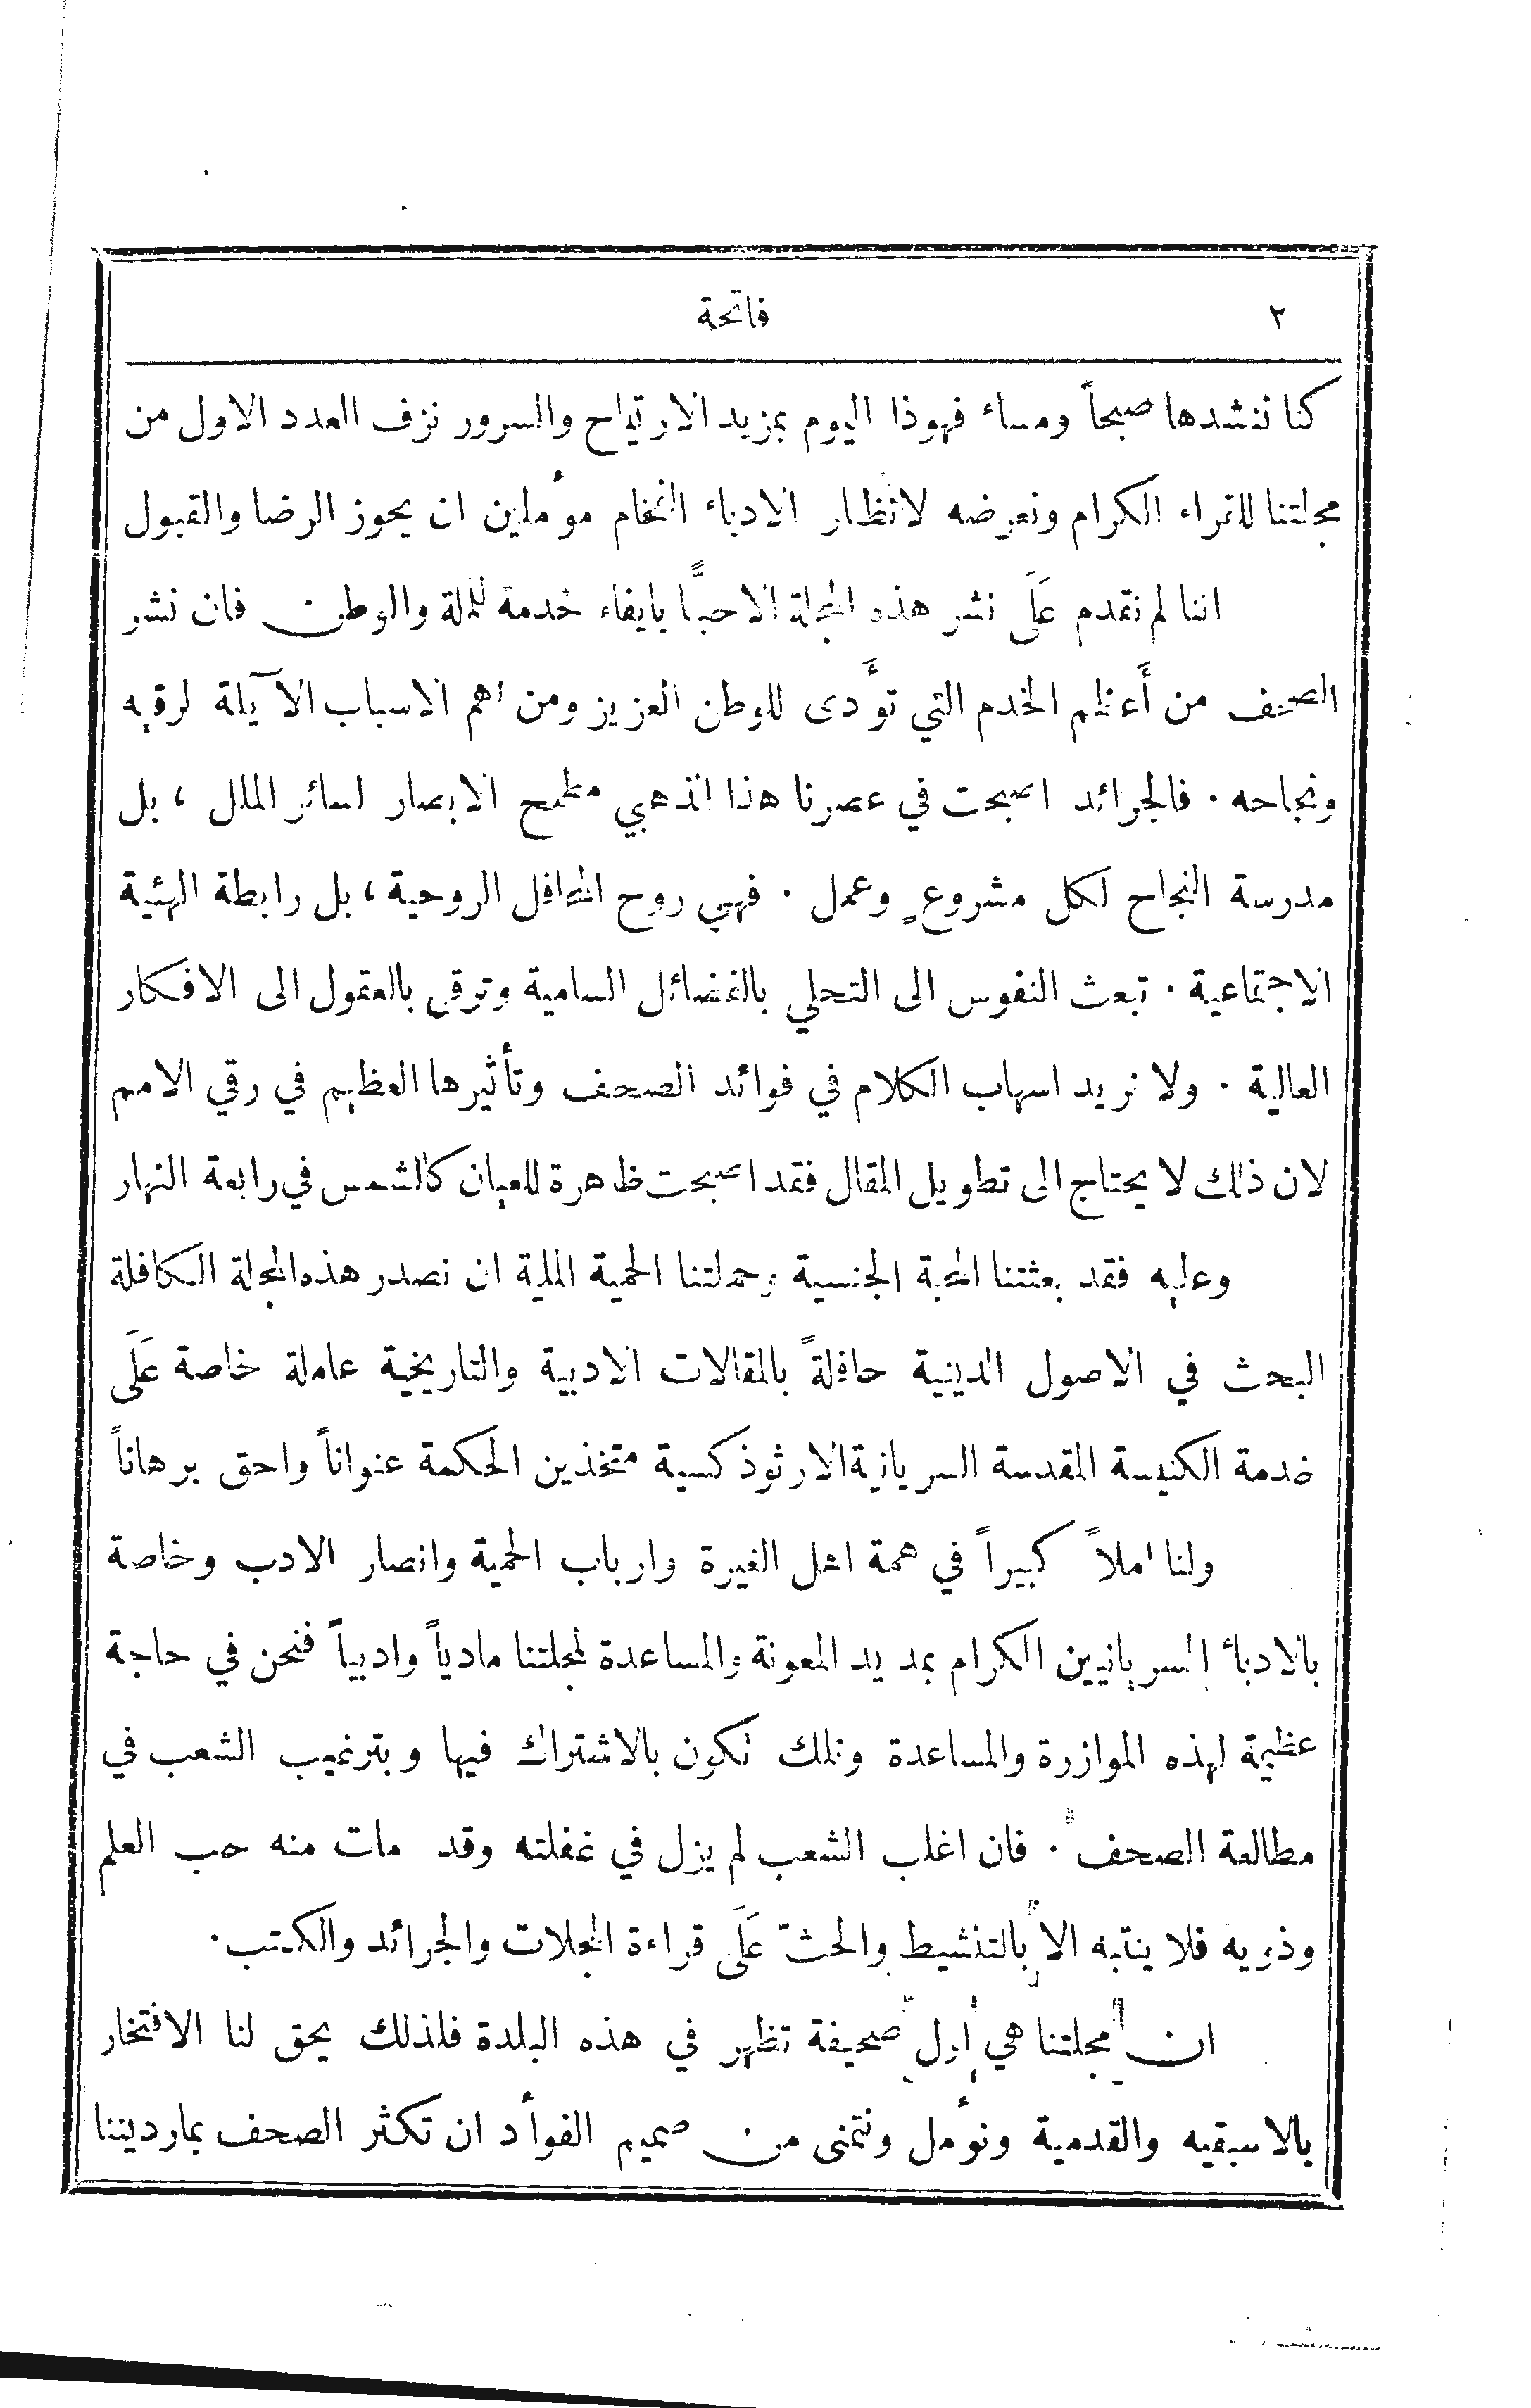 ٢
فاتحة
كنا ننشدها صبحاً ومساء فهوذا اليوم بمزيد الارتياح والسرور نزف العدد الاول من
مجلتنا للقراء الكرام ونعرضه لانظار الادباء الفخام موءملين ان يحوز الرضا والقبول
اننا لم نقدم عَلَى نشر هذه المجلة الا حبًّا بايفاء خدمة للملة والوطن فان نشر
الصحف من أَعظم الخدم التي توءَدى للوطن العزيز ومن اهم الاسباب الآيلة لرقيه
ونجاحه . فالجرائد اصبحت في عصرنا هذا الذهبي مطمح الابصار لسائر الملل ، بل
مدرسة النجاح لكل مشروعٍ وعمل . فهي روح المحافل الروحية ، بل رابطة الهئية
الاجتماعية . تبعث النفوس الى التحلي بالفضائل السامية وترقى بالعقول الى الافكار
العالية . ولا نريد اسهاب الكلام في فوائد الصحف وتأثيرها العظيم في رقي الامم
لان ذلك لا يحتاج الى تطويل المقال فقد اصبحت ظاهرة للعيان كالشمس في رابعة النهار
وعليه فقد بعثتنا المحبة الجنسية وحملتنا الحمية الملية ان نصدر هذه المجلة الكافلة
البحث في الاصول الدينية حافلةً بالمقالات الادبية والتاريخية عاملة خاصة عَلَى
خدمة الكنيسة المقدسة السريانية الارثوذكسية متخذين الحكمة عنواناً واحق برهاناً
ولنا املاً كبيراً في همة اهل الغيرة وارباب الحمية وانصار الادب وخاصة
بالادباء السريانيين الكرام بمد يد المعونة والمساعدة لمجلتنا مادياً وادبياً فنحن في حاجة
عظيمة لهذه الموازرة والمساعدة وتلك تكون بالاشتراك فيها وبترغيب الشعب في
مطالعة الصحف . فان اغلب الشعب لم يزل في غفلته وقد مات منه حب العلم
وذويه فلا ينتبه الا بالتنشيط والحثّ عَلَى قراءة المجلات والجرائد والكتب .
ان مجلتنا هي اول صحيفة تظهر في هذه البلدة فلذلك يحق لنا الافتخار
بالاسبقيه والقدمية ونوءمل ونتمنى من صميم الفوأد ان تكثر الصحف بمارديننا